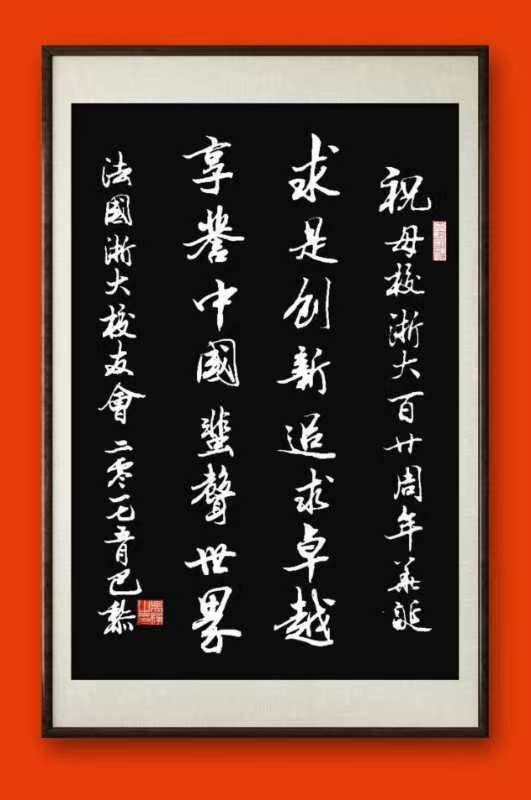 祝母校浙大百廿周年華誕
求是创新追求卓越
享誉中國蜚聲世界
法國浙大校友會二零一七年五月巴黎